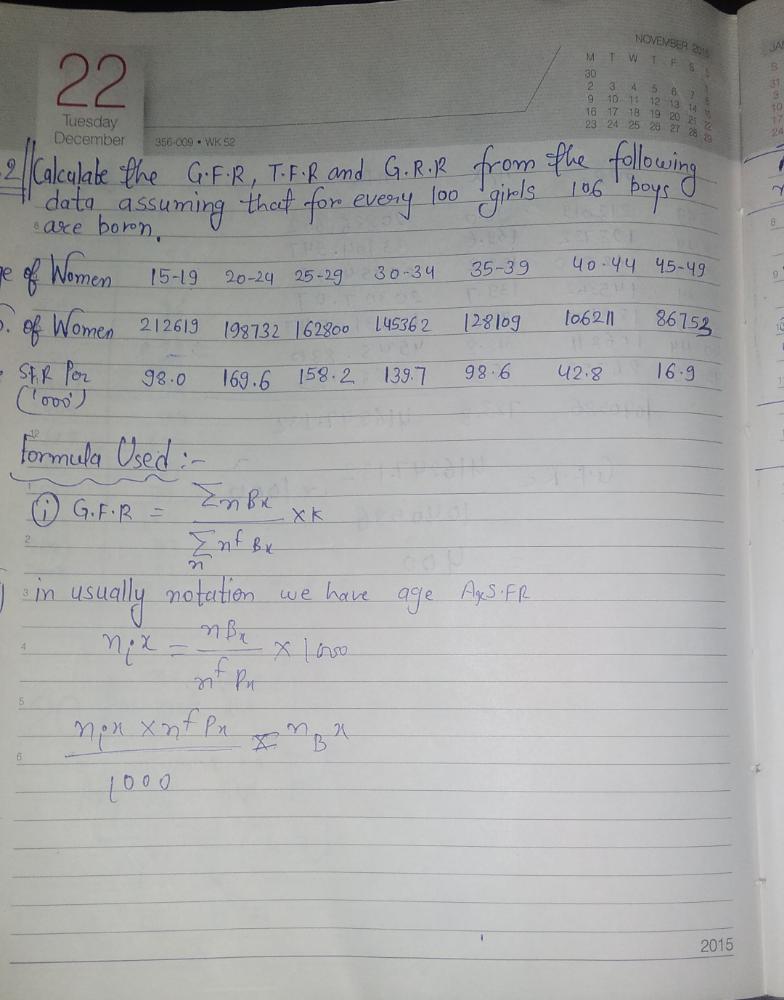 NOVEMBER 2015
M T W T F S S
30 1
2 3 4 5 6 7 8
9 10 11 12 13 14 15
16 17 18 19 20 21 22
23 24 25 26 27 28 29
22
Tuesday
December
356-009 • WK 52
2 Calculate the G.F.R, T.F.R and G.R.R from the following
data assuming that for every 100 girls 106 boys
are boren.
ge of Women 15-19 20-24 25-29 30-34 35-39 40-44 45-49
of Women 212619 198732 162800 145362 128109 106211 86753
S.F.R Per 98.0 169.6 158.2 139.7 98.6 42.8 16.9
('000')
Formula Used :-
(i) G.F.R = ∑n Bx / ∑n n^f Bx × K
in usually notation we have age AxS.FR
nix = nBx / n^f Px × 1000
nix × n^f Px / 1000 = nBx
2015